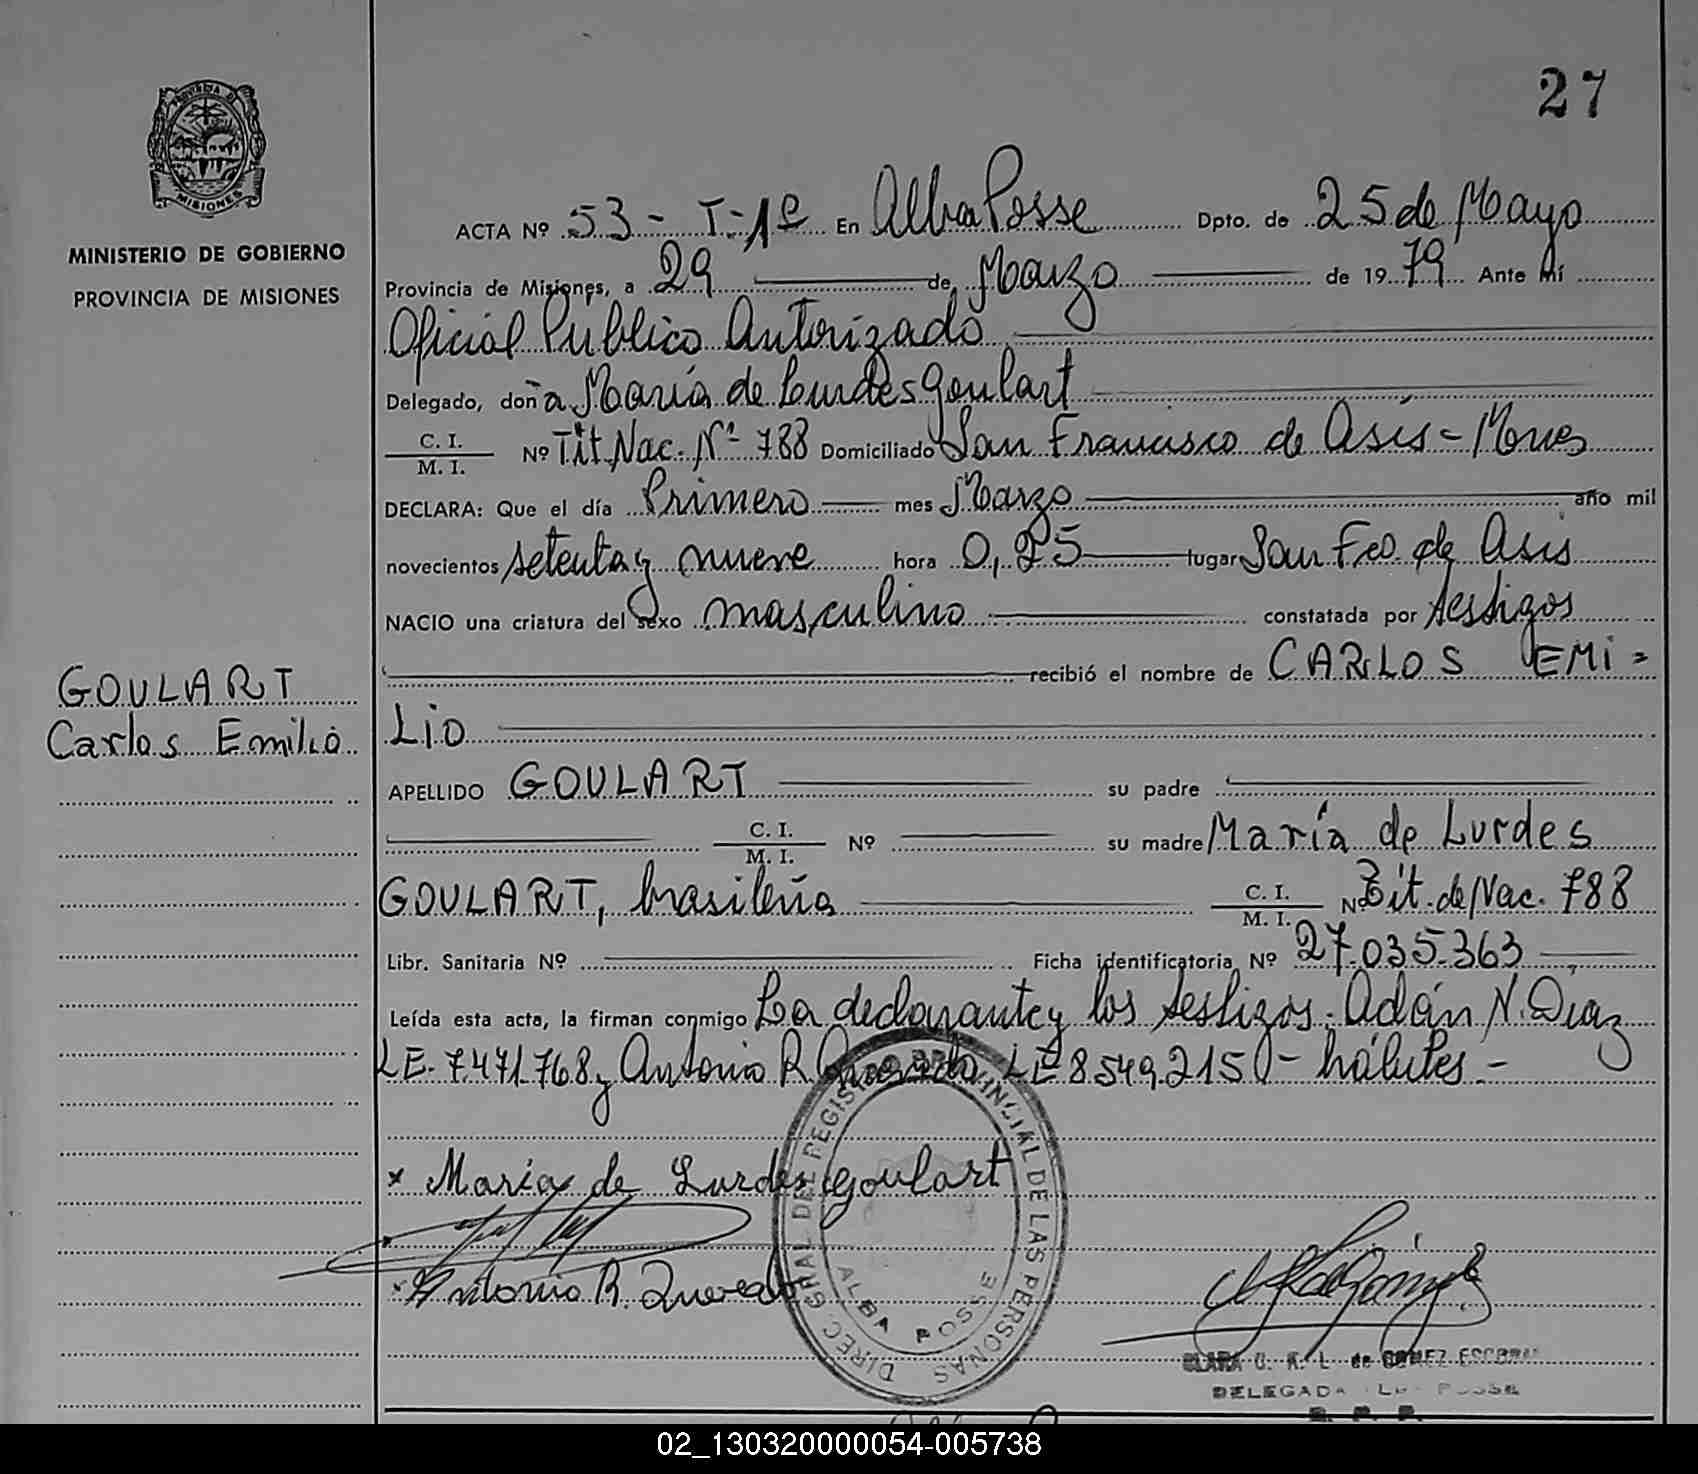 27
PROVINCIA DE
MISIONES
MINISTERIO DE GOBIERNO
PROVINCIA DE MISIONES
GOULART
Carlos Emilio
ACTA Nº 53 - T-1º En Alba Posse Dpto. de 25 de Mayo
Provincia de Misiones, a 29 de Marzo de 1979 Ante mí
Oficial Público Autorizado
Delegado, doña María de Lurdes Goulart
C. I.
M. I. Nº Tit. Nac. Nº 788 Domiciliado San Francisco de Asis - Mnes
DECLARA: Que el día Primero mes Marzo año mil
novecientos setenta y nueve hora 0,25 lugar San Fco. de Asis
NACIO una criatura del sexo masculino constatada por testigos
recibió el nombre de CARLOS EMI=
Lio
APELLIDO GOULART su padre
C. I.
M. I. Nº su madre María de Lurdes
GOULART, brasileña C. I.
M. I. Nº Tit. de Nac. 788
Libr. Sanitaria Nº Ficha identificatoria Nº 27.035.363
Leída esta acta, la firman conmigo La declarante y los testigos: Adán N. Diaz
LE. 7.471.768 y Antonio R. Quevedo LE 8549215 - hábiles.-
x Maria de Lurdes goulart
Antonio R. Quevedo
DIREC. GRAL. DEL REGISTRO PROVINCIAL DE LAS PERSONAS
ALBA POSSE
CLARA de GOMEZ ESCOBAR
DELEGADA POSSE
02_130320000054-005738